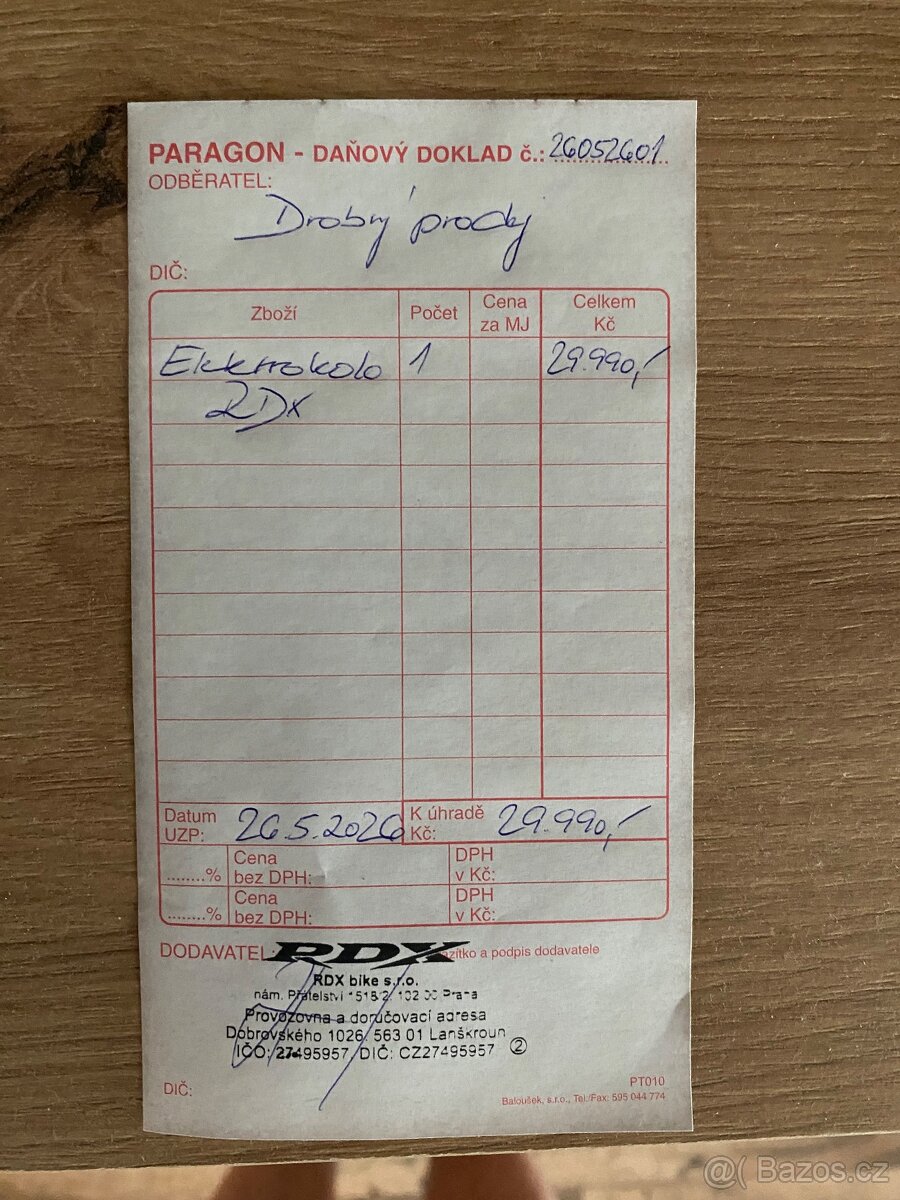 PARAGON - DAŇOVÝ DOKLAD č.: 26052601
ODBĚRATEL:
Drobný prodej
DIČ:
Zboží Počet Cena za MJ Celkem Kč
Elektrokolo 1 29.990,-
RDX
Datum UZP: 26.5.2026 K úhradě Kč: 29.990,-
........% Cena bez DPH: DPH v Kč:
........% Cena bez DPH: DPH v Kč:
DODAVATEL RDX azítko a podpis dodavatele
RDX bike s.r.o.
nám. Přátelství 1518/2, 102 00 Praha
Provozovna a doručovací adresa
Dobrovského 1026, 563 01 Lanškroun
IČO: 27495957, DIČ: CZ27495957 2
DIČ:
PT010
Baloušek, s.r.o., Tel./Fax: 595 044 774
@ Bazos.cz